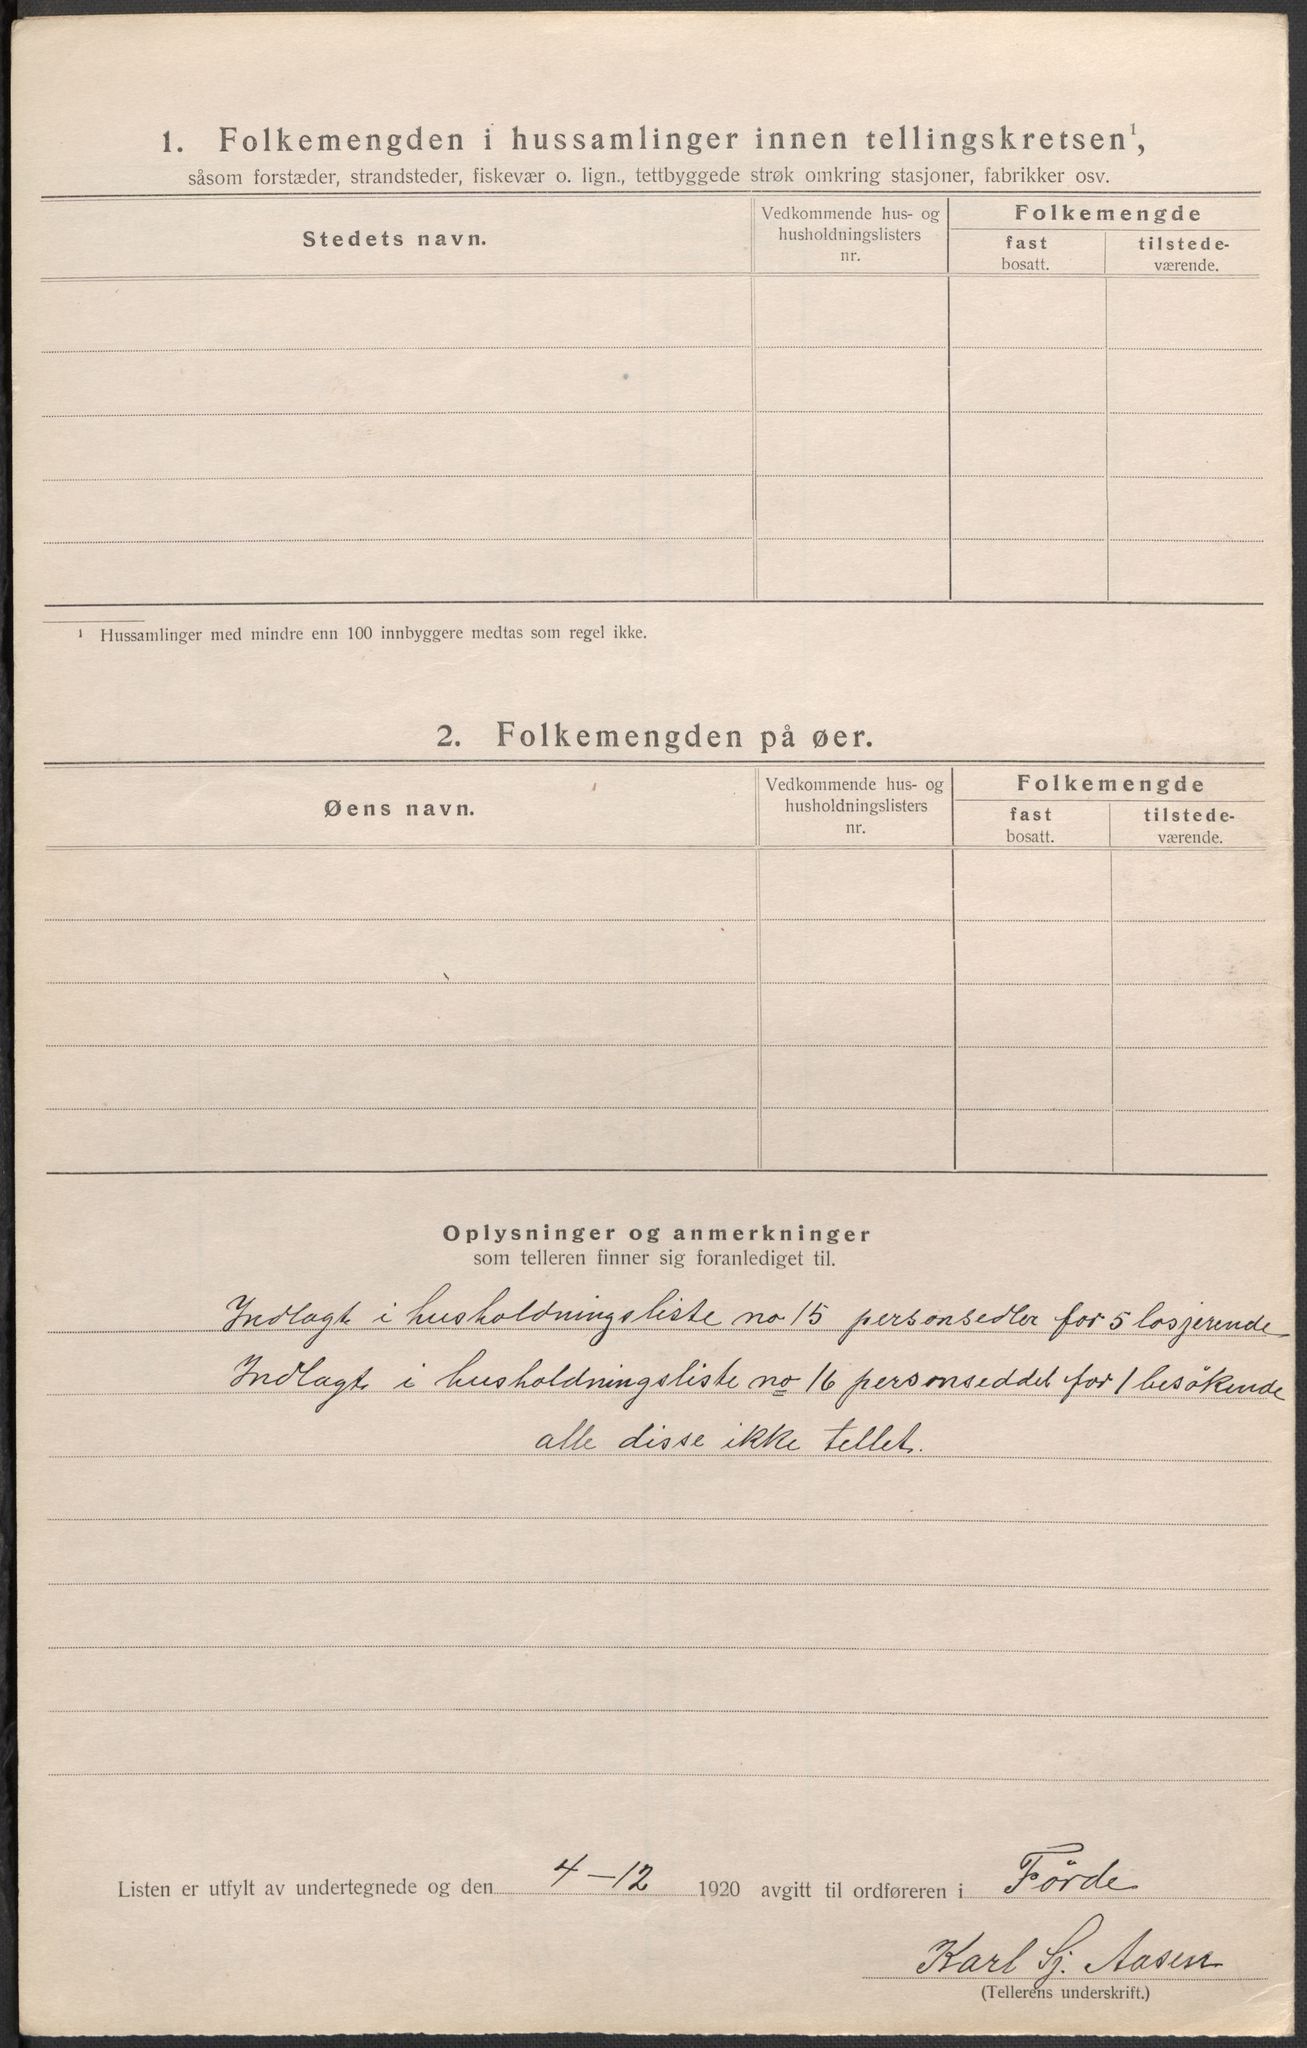 1. Folkemengden i hussamlinger innen tellingskretsen¹,
såsom forstæder, strandsteder, fiskevær o. lign., tettbyggede strøk omkring stasjoner, fabrikker osv.
Stedets navn.
Vedkommende hus- og
husholdningslisters
nr.
Folkemengde
fast
bosatt.
tilstede-
værende.
¹ Hussamlinger med mindre enn 100 innbyggere medtas som regel ikke.
2. Folkemengden på øer.
Øens navn.
Vedkommende hus- og
husholdningslisters
nr.
Folkemengde
fast
bosatt.
tilstede-
værende.
Oplysninger og anmerkninger
som telleren finner sig foranlediget til.
Indlagt i husholdningsliste no 15 personsedler for 5 losjerende
Indlagt i husholdningsliste no 16 personseddel for 1 besökende
alle disse ikke tellet.
Listen er utfylt av undertegnede og den 4-12 1920 avgitt til ordføreren i Förde
Karl Sj. Aasen
(Tellerens underskrift.)